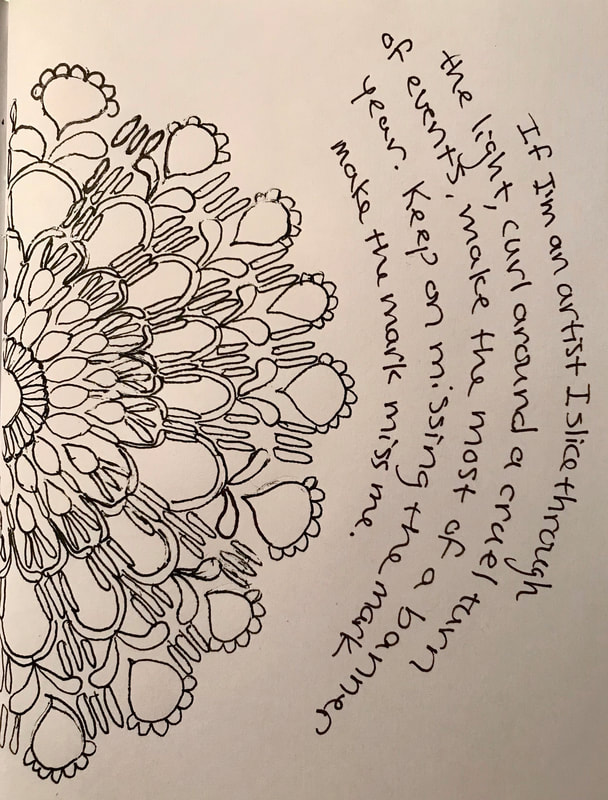 If I'm an artist I slice through
the light, curl around a cruel turn
of events, make the most of a banner
year. Keep on missing the mark
make the mark miss me.